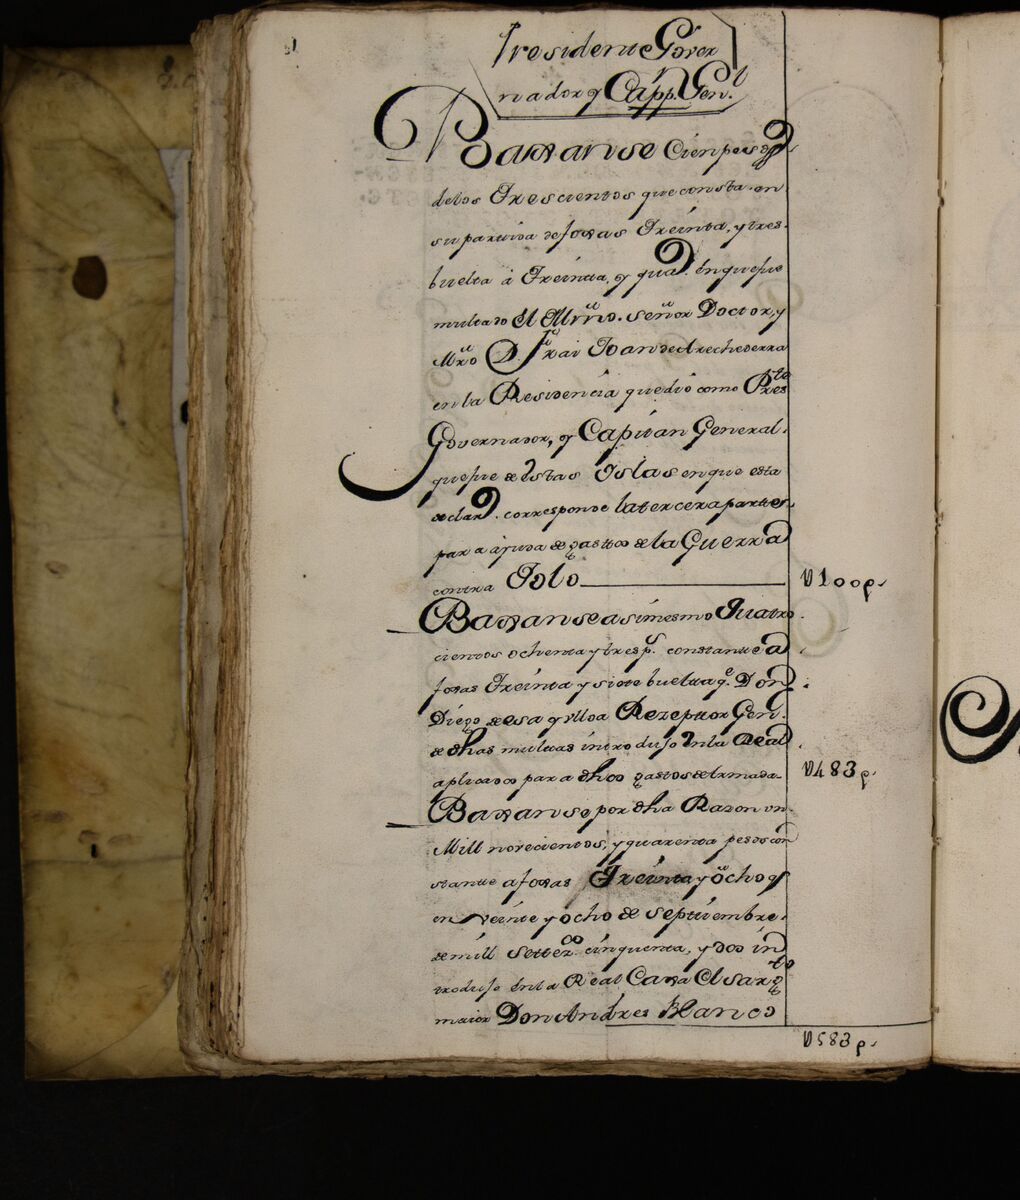 Presidente Gover
nador y Capp. Gen.l
Baxanse Cien pesos
de los Trescientos que consta en
su partida de foxas Treinta, y tres
buelta á Treinta, y qua.º en que fue
multado el Yllmo. Señor Doctor, y
Mro D. Frai Joan de Arechederra
en la Residencia que dió como Pres.te
Governador, y Capitan General
que fue de estas Yslas en que esta
declar.º corresponde la tercera parte
para ayuda de gastos de la Guerra
contra Jolo
U100p.
Baxanse asimesmo Quatro
cientos ochenta y tres p.s constante a
foxas Treinta y siete buelta q.e Don
Diego de esa y Ulloa Rezeptor Gen.l
de dhas multas introduxo en la Real
aplicados para dhos gastos de Armada
U483p.
Baxanse por dha Razon un
Mill novecientos, y quarenta pesos con
stante a foxas Treinta y ocho q.e
en veinte y ocho de Septiembre
de mill settez.os cinquenta, y dos in
troduxo en la Real Caxa el Sarg.to
maior Don Andres Blanco
U583p.